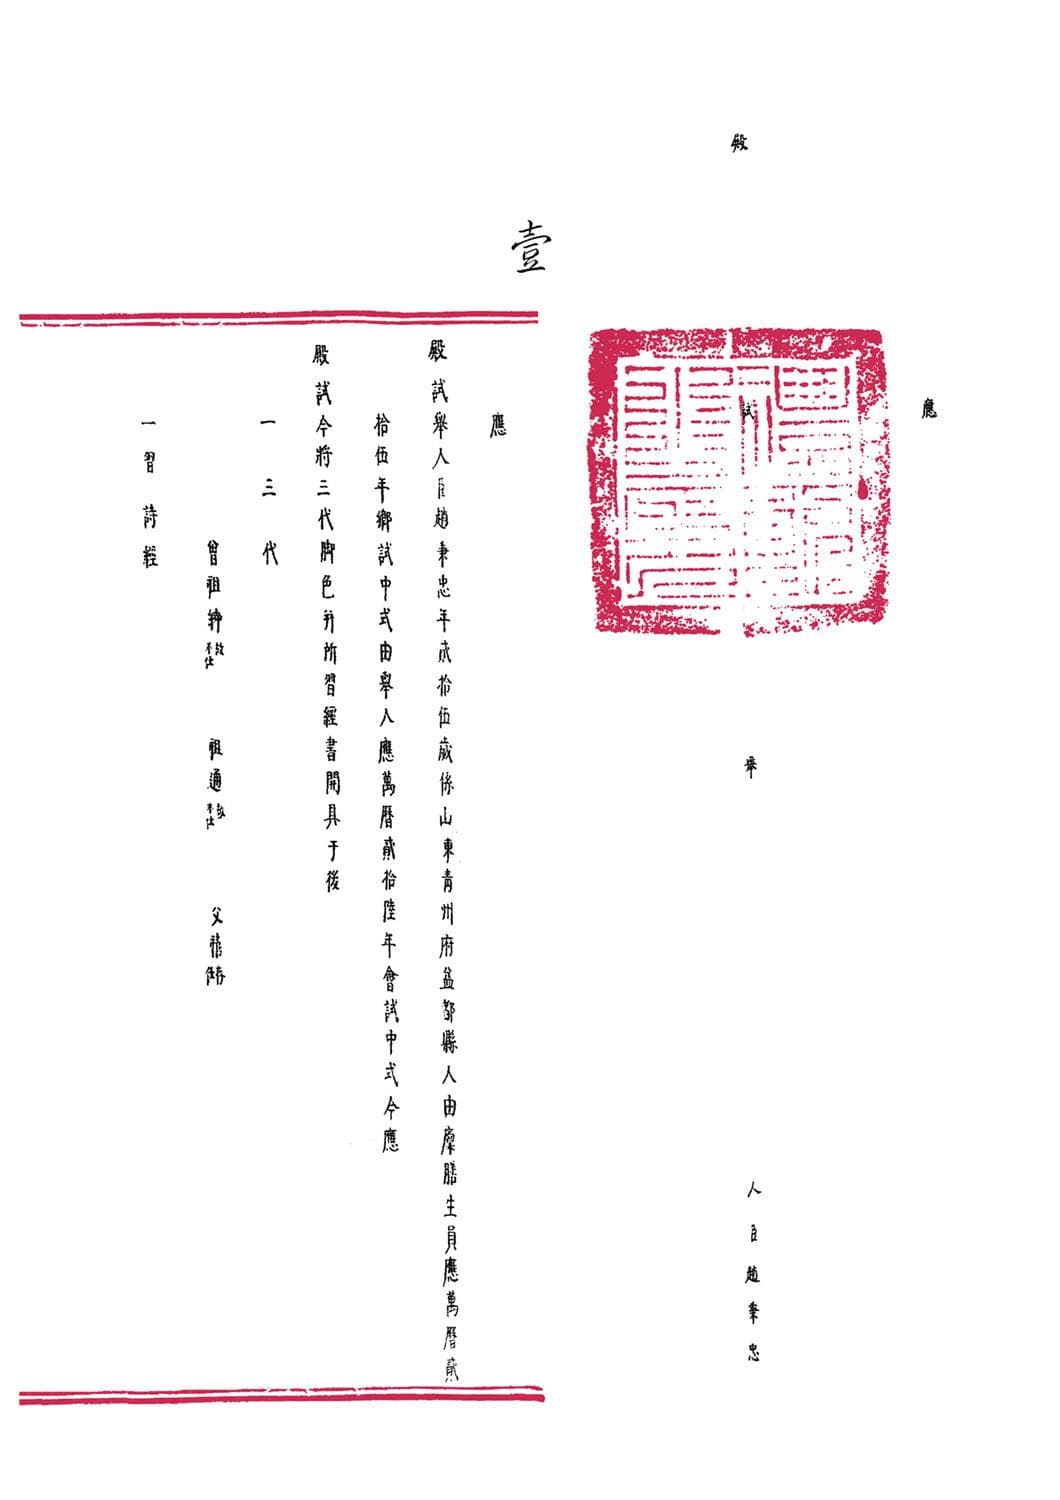 應
殿試舉人臣趙秉忠
壹
應
殿試舉人臣趙秉忠年貳拾伍歲係山東青州府益都縣人由廩膳生員應萬曆貳
拾伍年鄉試中式由舉人應萬曆貳拾陸年會試中式今應
殿試今將三代脚色并所習經書開具于後
一三代
曾祖紳故不仕 祖通故不仕 父禧
一習詩經